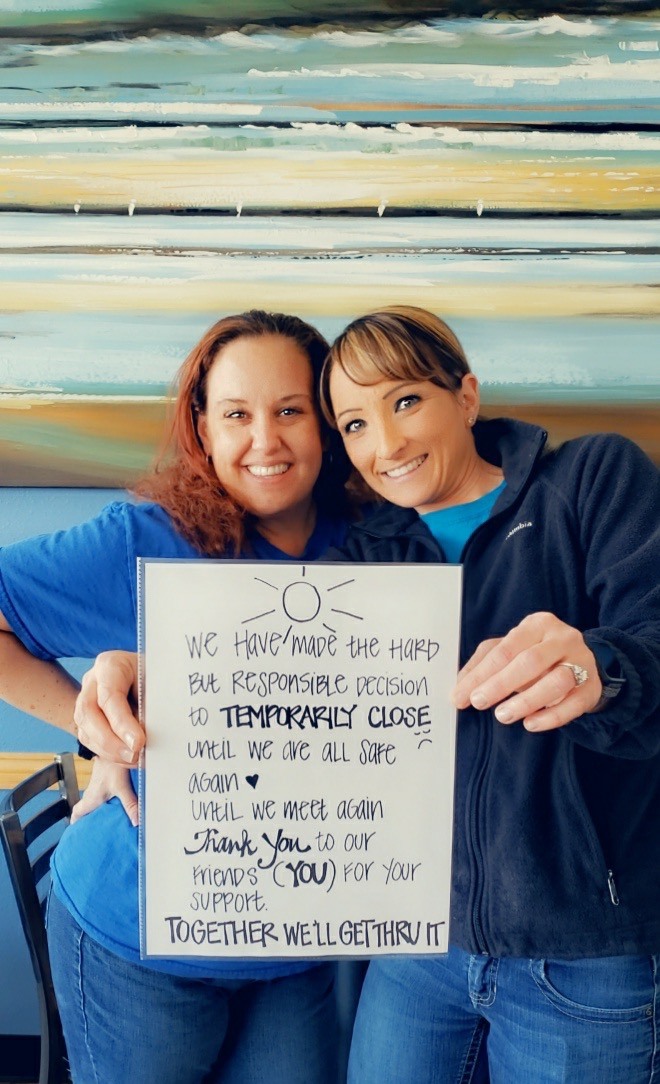 WE HAVE MADE THE HARD
BUT RESPONSIBLE DECISION
to TEMPORARILY CLOSE
UNTIL WE ARE ALL SAFE
AGAIN ♥
UNTIL WE MEET AGAIN
Thank You to our
FRIENDS (YOU) FOR YOUR
SUPPORT.
TOGETHER WE'LL GET THRU IT
Columbia